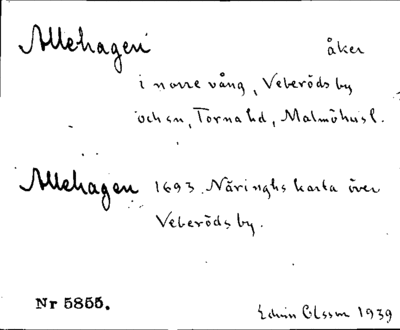 Allehagen åker
i norre vång, Veberöds by
och sn, Torna hd, Malmöhus l.
Allehagen 1693 Näringhs karta över
Veberöds by.
Nr 5855.
Edvin Olsson 1939